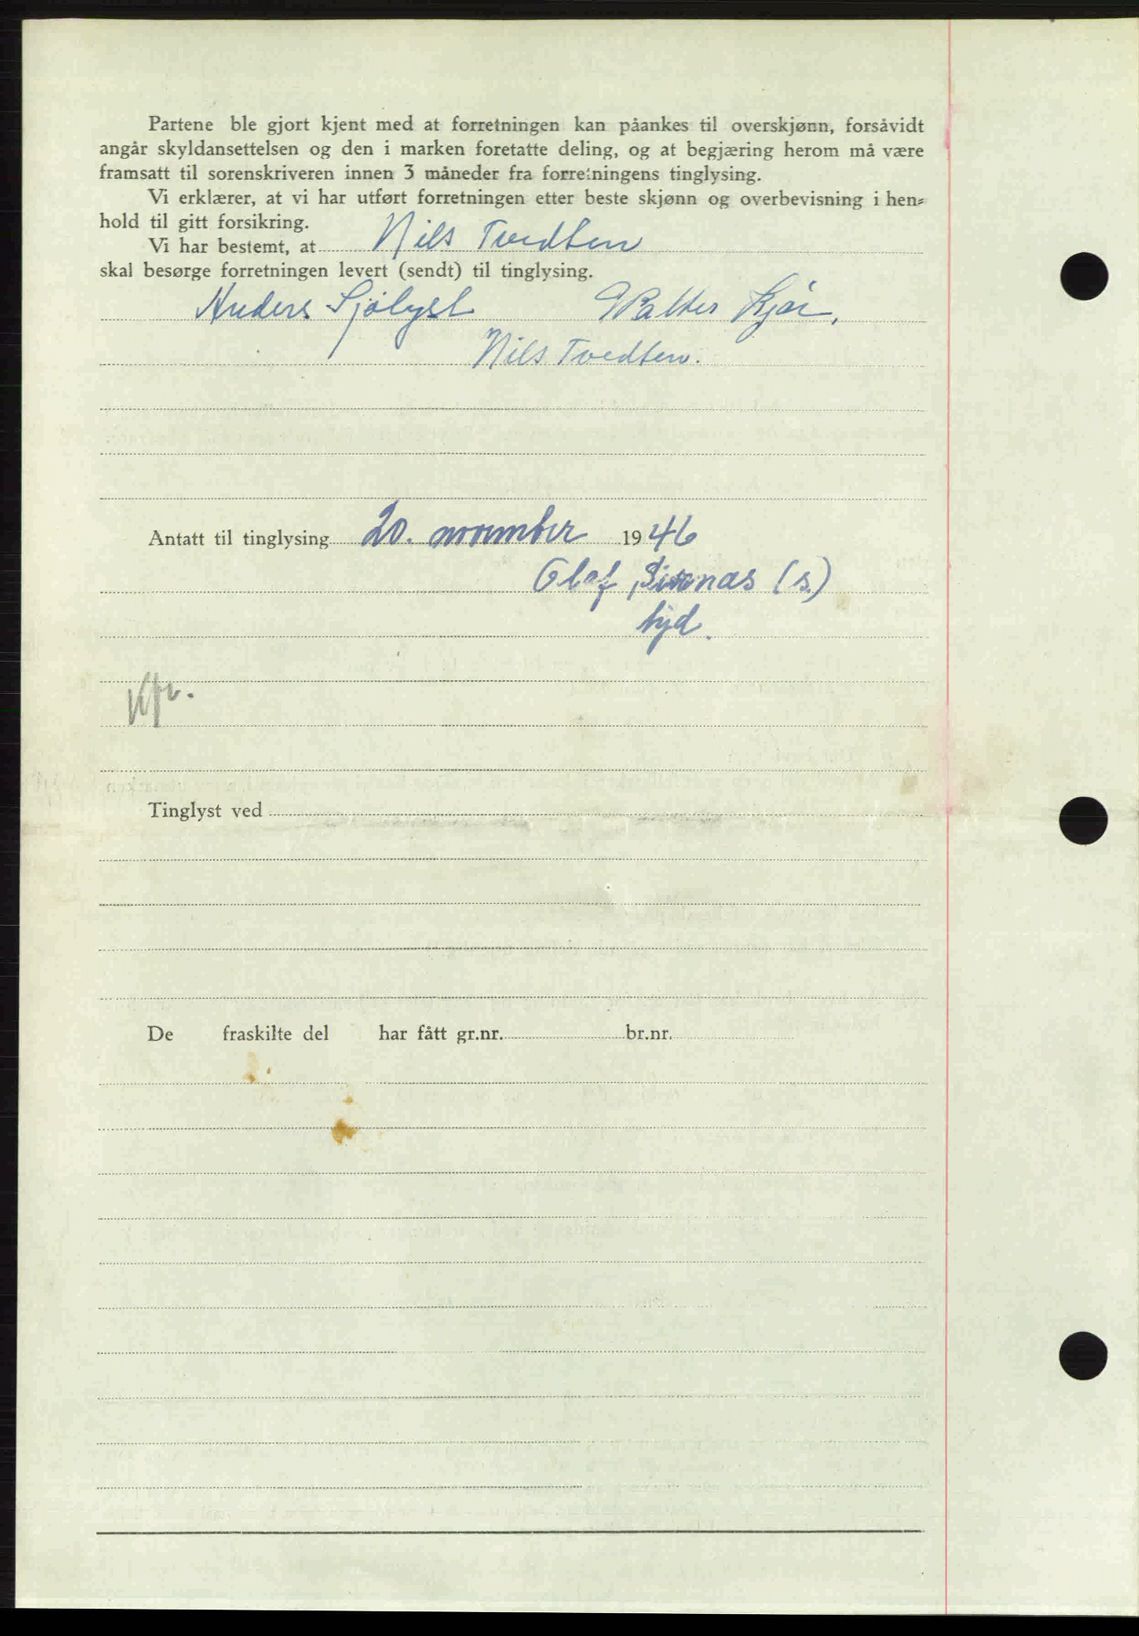 Partene ble gjort kjent med at forretningen kan påankes til overskjønn, forsåvidt
angår skyldansettelsen og den i marken foretatte deling, og at begjæring herom må være
framsatt til sorenskriveren innen 3 måneder fra forretningens tinglysing.
Vi erklærer, at vi har utført forretningen etter beste skjønn og overbevisning i hen-
hold til gitt forsikring.
Vi har bestemt, at Nils Tvedten
skal besørge forretningen levert (sendt) til tinglysing.
Anders Sjølyst Walter Kjær,
Nils Tvedten.
Antatt til tinglysing 20. november 1946
Olaf (s.)
Kfr.
Tinglyst ved
De fraskilte del har fått gr.nr. br.nr.